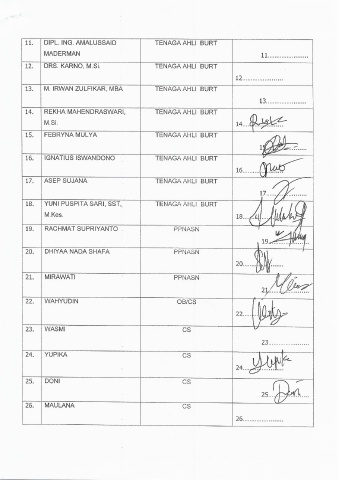 11. DIPL. ING. AMALUSSAID TENAGA AHLI BURT
MADERMAN 11....................
12. DRS. KARNO, M.Si. TENAGA AHLI BURT
12....................
13. M. IRWAN ZULFIKAR, MBA TENAGA AHLI BURT
13....................
14. REKHA MAHENDRASWARI, TENAGA AHLI BURT
M.Si. 14....................
15. FEBRYNA MULYA TENAGA AHLI BURT
15....................
16. IGNATIUS ISWANDONO TENAGA AHLI BURT
16....................
17. ASEP SUJANA TENAGA AHLI BURT
17....................
18. YUNI PUSPITA SARI, SST., TENAGA AHLI BURT
M.Kes. 18....................
19. RACHMAT SUPRIYANTO PPNASN
19....................
20. DHIYAA NADA SHAFA PPNASN
20....................
21. MIRAWATI PPNASN
21....................
22. WAHYUDIN OB/CS
22....................
23. WASMI CS
23....................
24. YUPIKA CS
24.... Yupika
25. DONI CS
25.... Doni
26. MAULANA CS
26....................